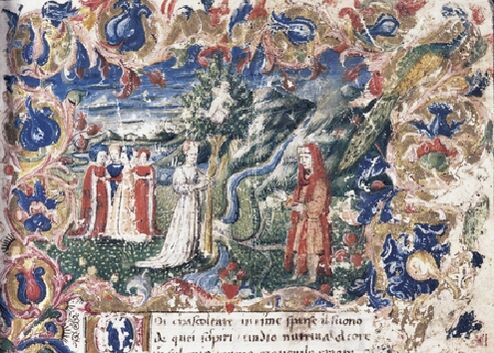 Oi chascoltate in rime sparse il suono
de quei sospiri undio nutriva il core